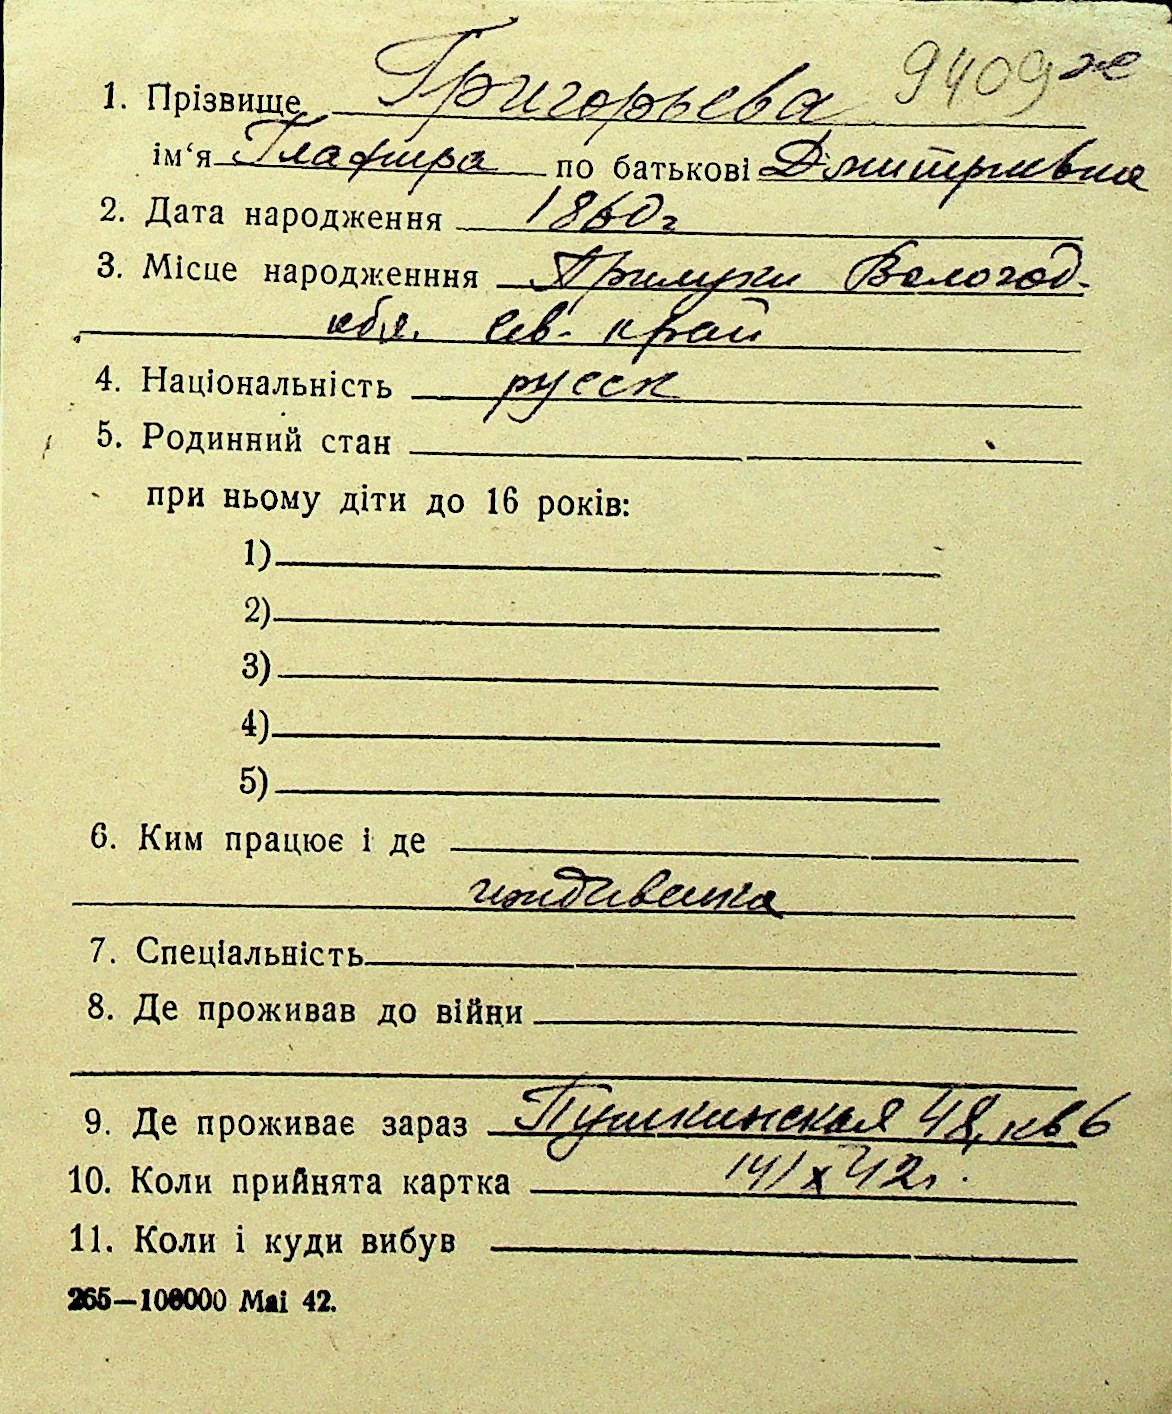 9409 ж
1. Прізвище Григорьева
ім‘я Глафира по батькові Дмитриевна
2. Дата народження 1860 г
3. Місце народженння Прилуки Вологод.
обл. Сев. край
4. Національність русск
5. Родинний стан
при ньому діти до 16 років:
1)
2)
3)
4)
5)
6. Ким працює і де
иждивенка
7. Спеціальність
8. Де проживав до війни
9. Де проживає зараз Пушкинская 48, кв 6
10. Коли прийнята картка 14/X 42 г.
11. Коли і куди вибув
265—100000 Маі 42.